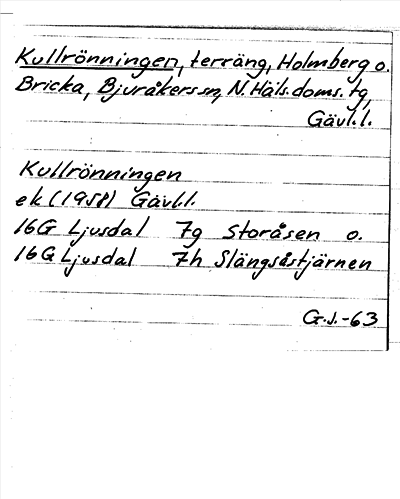 Kullrönningen, terräng, Holmberg o.
Bricka, Bjuråkers sn, N. Häls. doms. tg,
Gävl. l.
Kullrönningen
ek (1958) Gävl.l.
16G Ljusdal 7g Storåsen o.
16G Ljusdal 7h Slängsåstjärnen
G.J.-63